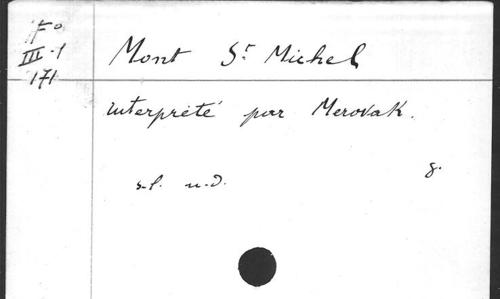 F°
III-1
171
Mont St Michel
interprété par Merovak.
s.l. n.d.
g.